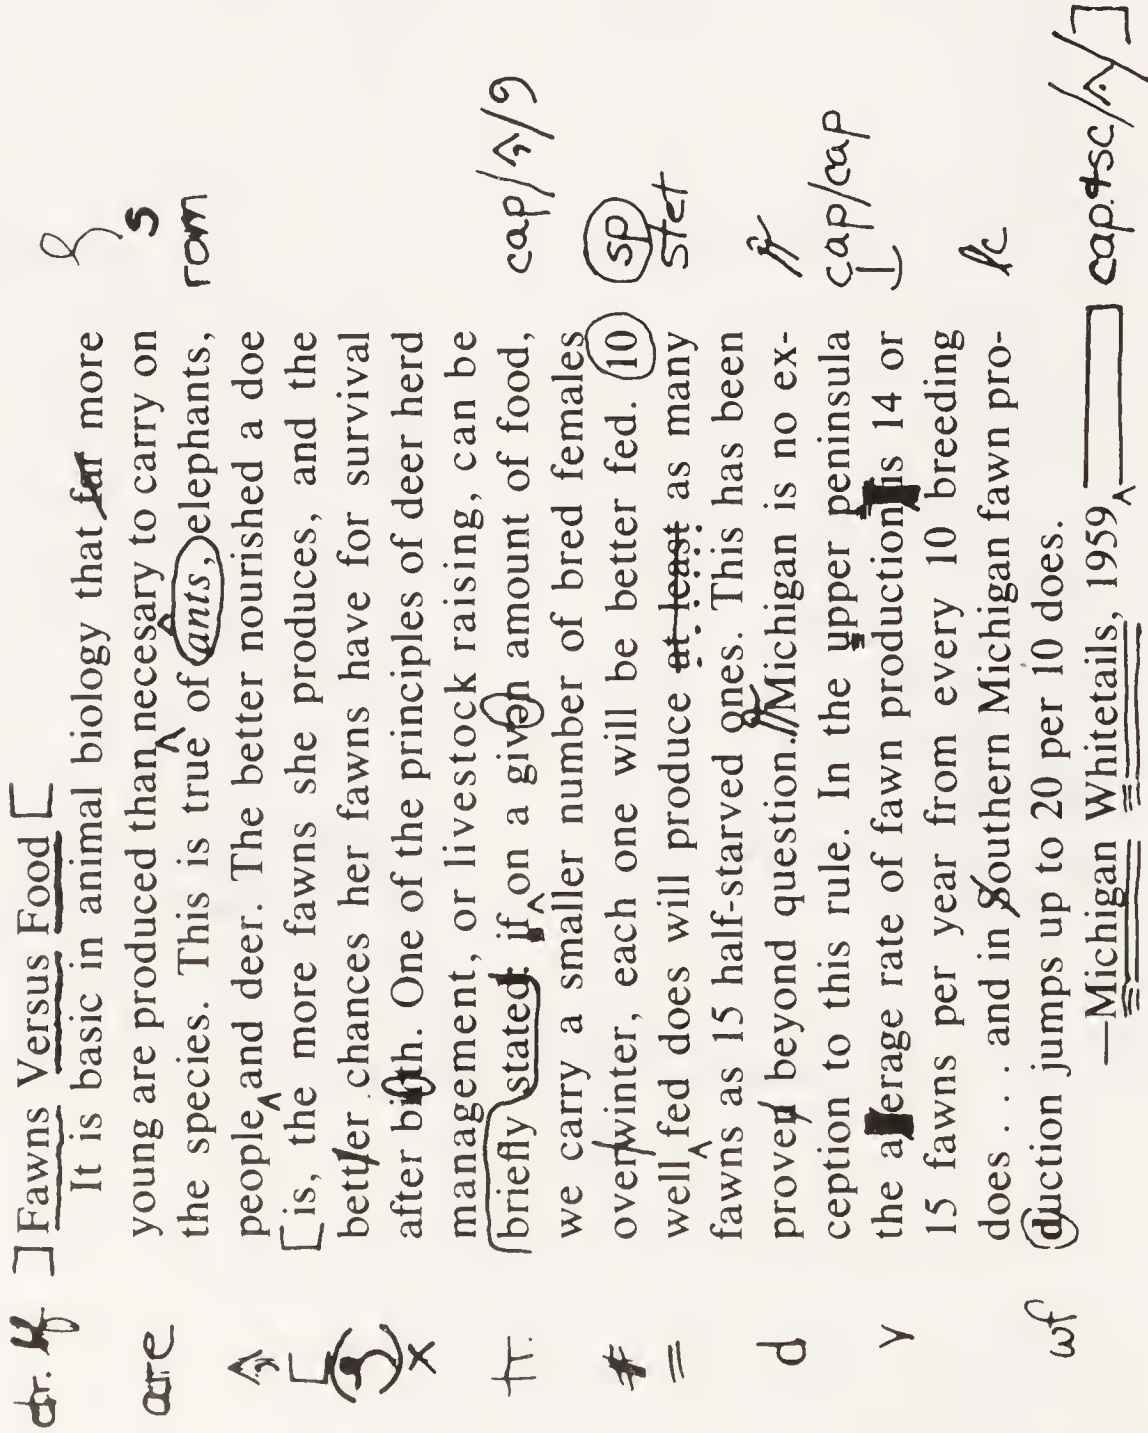 ctr. lf ] Fawns Versus Food [
It is basic in animal biology that far more
are young are produced than necesary to carry on s
the species. This is true of ants, elephants, rom
people and deer. The better nourished a doe
[ is, the more fawns she produces, and the
x better chances her fawns have for survival
after birth. One of the principles of deer herd
management, or livestock raising, can be
tr. briefly stated: if on a given amount of food, cap/^,/9
we carry a smaller number of bred females
# overwinter, each one will be better fed. 10 sp
= well fed does will produce at least as many stet
fawns as 15 half-starved ones. This has been
d proven beyond question. Michigan is no ex- ¶
ception to this rule. In the upper peninsula cap/cap
v the aerage rate of fawn production is 14 or
15 fawns per year from every 10 breeding
does . . . and in Southern Michigan fawn pro- lc
wf duction jumps up to 20 per 10 does.
—Michigan Whitetails, 1959 cap.+sc/^/]